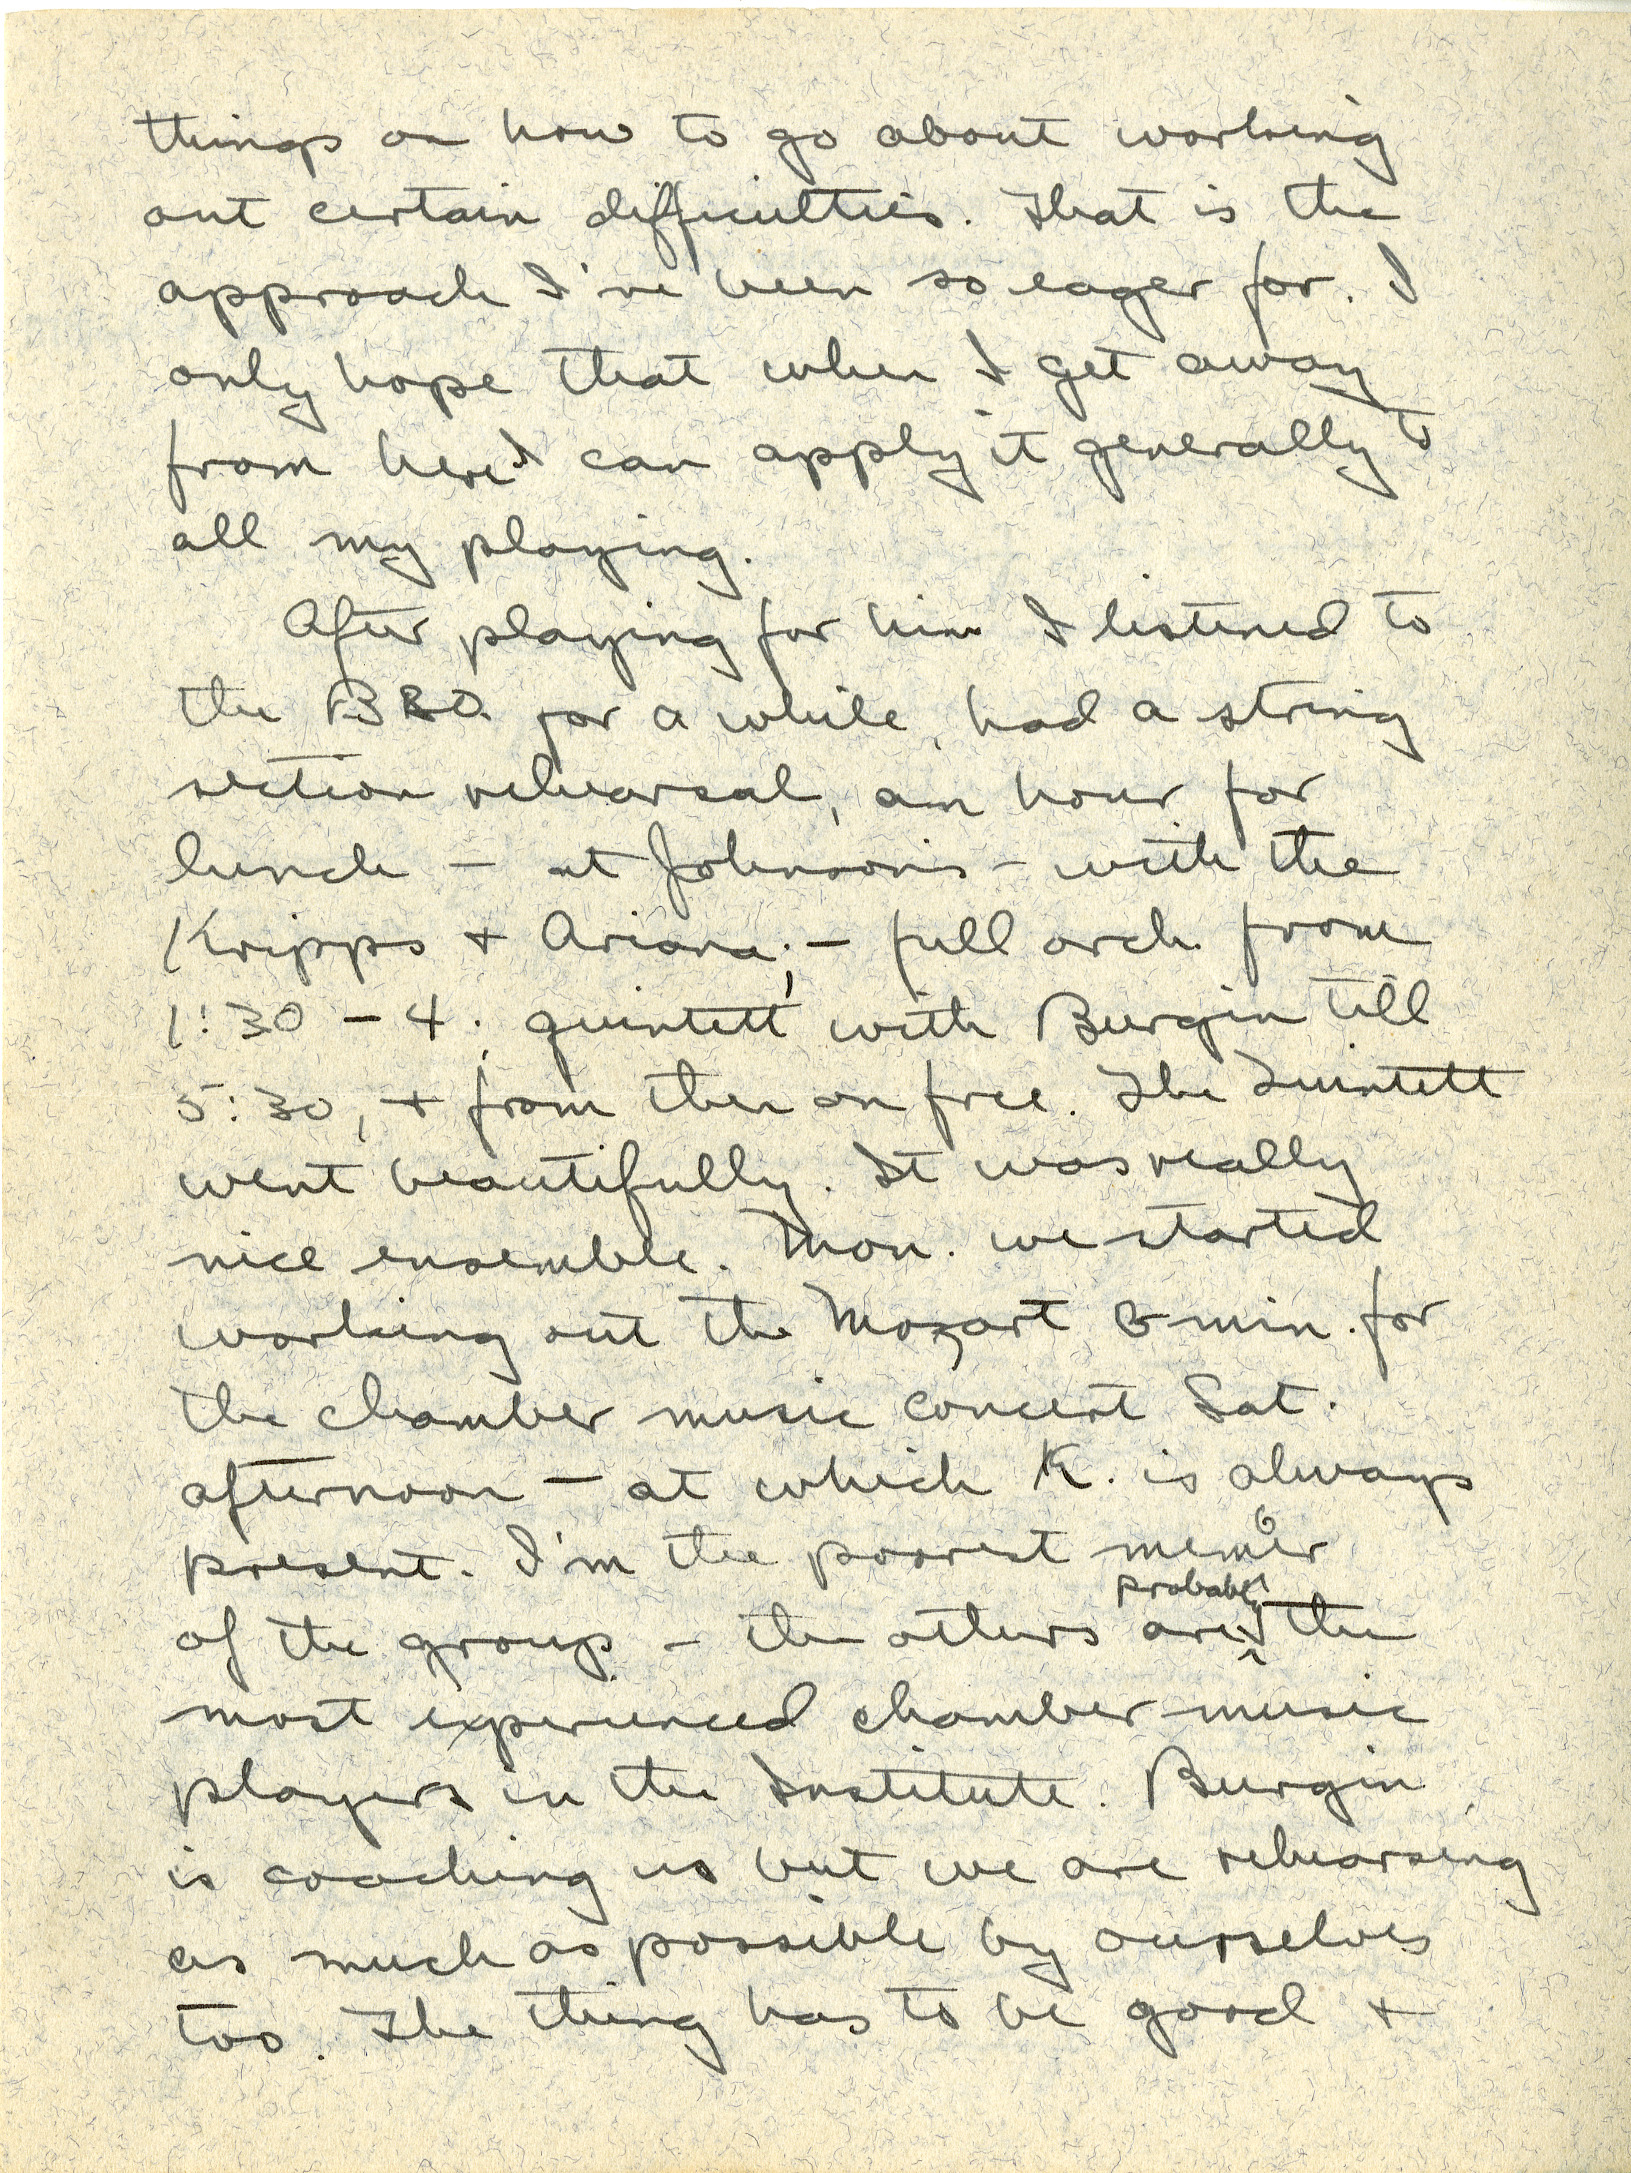 things on how to go about working
out certain difficulties. That is the
approach I've been so eager for. I
only hope that when I get away
from here I can apply it generally to
all my playing.
After playing for him I listened to
the BSO. for a while, had a string
section rehearsal, an hour for
lunch – at Johnson's – with the
Kripps + Ariana; – full orch. from
1:30 – 4; quintett with Burgin till
5:30, + from then on free. The Quintett
went beautifully. It was really
nice ensemble. Mon. we started
working out the Mozart G min. for
the chamber music concert Sat.
afternoon – at which K. is always
present. I'm the poorest member
of the group – the others are probably the
most experienced chamber music
players in the Institute. Burgin
is coaching us but we are rehearsing
as much as possible by ourselves
too. The thing has to be good +